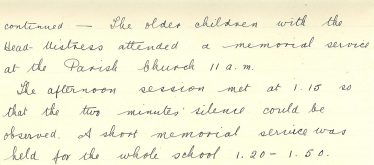 continued — The older children with the
Head-Mistress attended a memorial service
at the Parish Church 11 a.m.
The afternoon session met at 1.15 so
that the two minutes' silence could be
observed. A short memorial service was
held for the whole school 1.20 - 1.50.